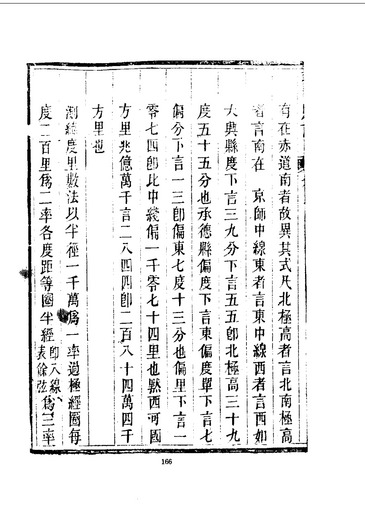 有在赤道南者故異其式尺北極高者言北南極高
者言南在 京師中線東者言東中線西者言西如
大興縣度下言三九分下言五五卽北極高三十九
度五十五分也承德縣偏度下言東偏度單下言七
偏分下言一三卽偏東七度十三分也偏里下言一
零七四卽比中綫偏一千零七十四里也黙西河國
方里兆億萬千言二八四四卽二百八十四萬四千
方里也
測緯度里數法以半徑一千萬爲一率過極經圈每
度二百里爲二率各度距等圈半經卽八線表餘弦爲三率
166